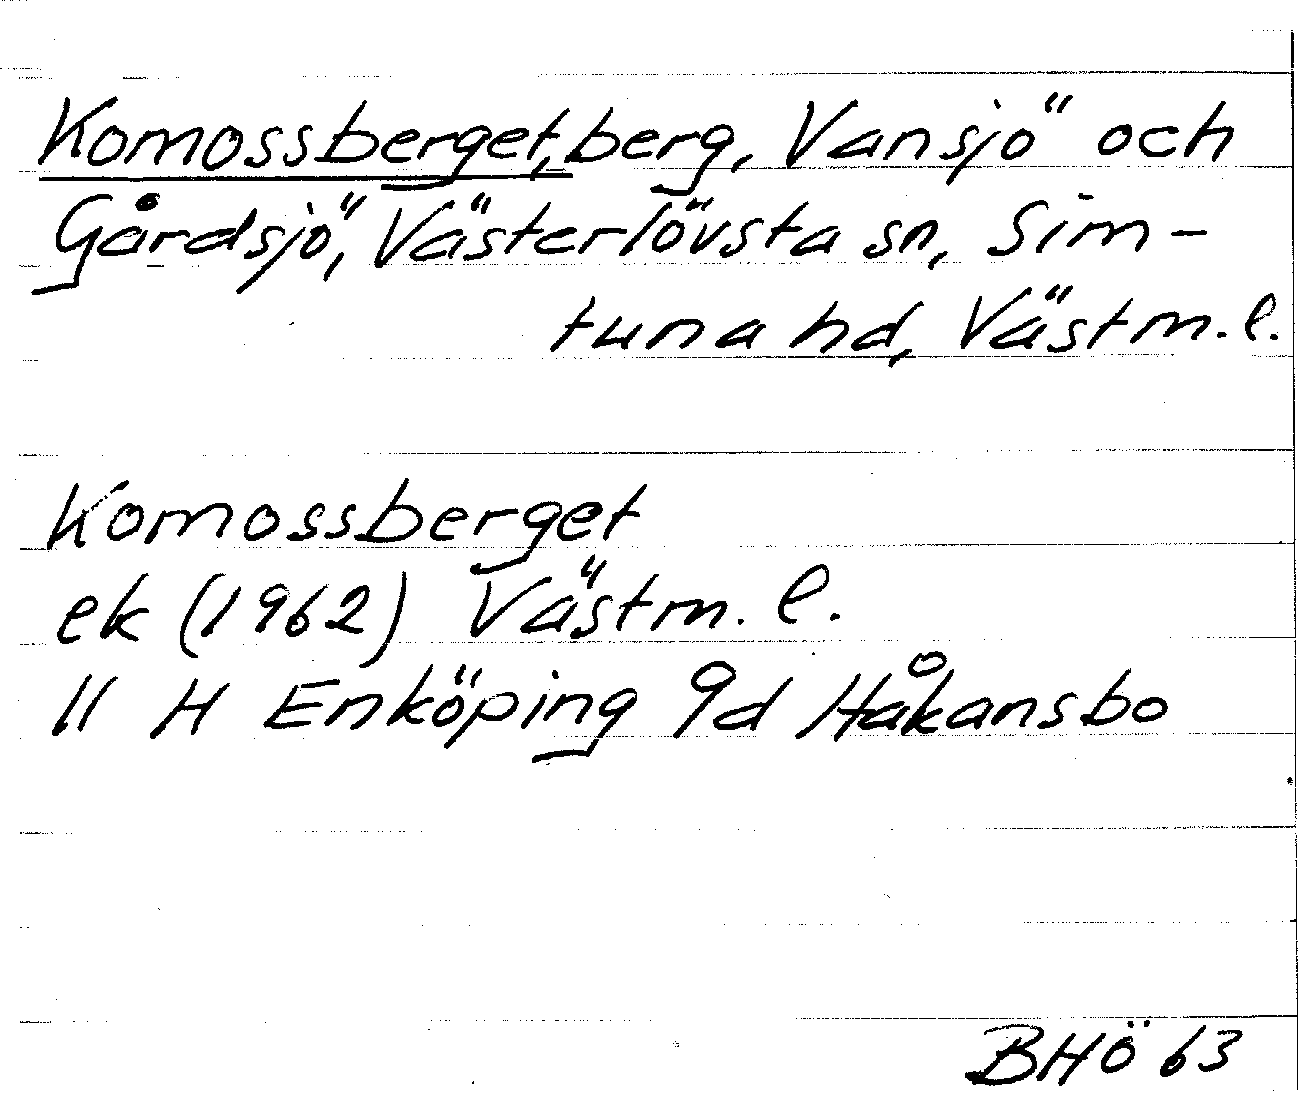 Komossberget, berg, Vansjö och
Gårdsjö, Västerlövsta sn, Sim-
tuna hd, Västm. l.
Komossberget
ek (1962) Västm. l.
11 H Enköping 9d Håkansbo
BHÖ 63